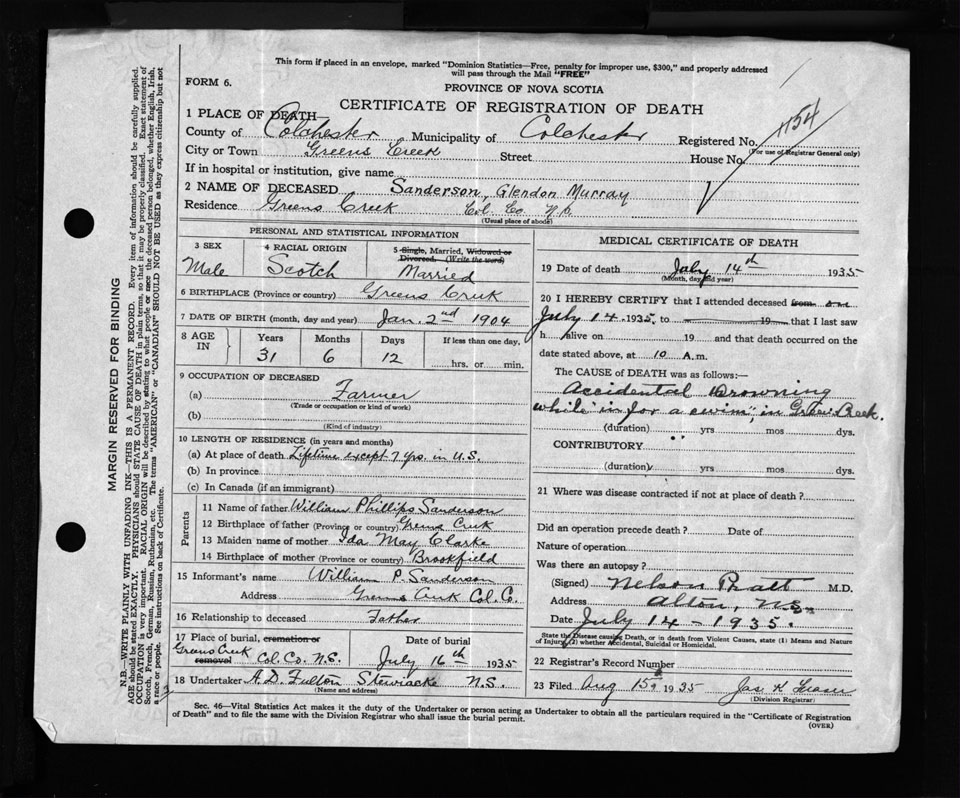 This form if placed in an envelope, marked "Dominion Statistics—Free, penalty for improper use, $300," and properly addressed
will pass through the Mail "FREE"
FORM 6.
PROVINCE OF NOVA SCOTIA
CERTIFICATE OF REGISTRATION OF DEATH
1 PLACE OF DEATH
County of Colchester Municipality of Colchester Registered No. 1154
(For use of Registrar General only)
City or Town Greens Creek Street House No.
If in hospital or institution, give name
2 NAME OF DECEASED Sanderson, Glendon Murray
Residence Greens Creek Col. Co. N.S.
(Usual place of abode)
PERSONAL AND STATISTICAL INFORMATION
3 SEX 4 RACIAL ORIGIN 5 Single, Married, Widowed or
Divorced. (Write the word)
Male Scotch Married
6 BIRTHPLACE (Province or country) Greens Creek
7 DATE OF BIRTH (month, day and year) Jan. 2nd 1904
8 AGE IN Years Months Days If less than one day,
31 6 12 hrs. or min.
9 OCCUPATION OF DECEASED
(a) Farmer
(Trade or occupation or kind of work)
(b)
(Kind of industry)
10 LENGTH OF RESIDENCE (in years and months)
(a) At place of death Lifetime except 7 yrs. in U.S.
(b) In province
(c) In Canada (if an immigrant)
Parents
11 Name of father William Phillips Sanderson
12 Birthplace of father (Province or country) Greens Creek
13 Maiden name of mother Ida May Clarke
14 Birthplace of mother (Province or country) Brookfield
15 Informant's name William P. Sanderson
Address Greens Creek Col. Co.
16 Relationship to deceased Father
17 Place of burial, cremation or removal Date of burial
Greens Creek Col. Co. N.S. July 16th 1935
18 Undertaker A. D. Fulton Stewiacke N.S.
(Name and address)
MEDICAL CERTIFICATE OF DEATH
19 Date of death July 14th 1935
(Month, day and year)
20 I HEREBY CERTIFY that I attended deceased from on
July 14 1935, to 19 that I last saw
h alive on 19 and that death occurred on the
date stated above, at 10 A.m.
The CAUSE OF DEATH was as follows:—
Accidental Drowning
while "in for a swim", in Creek.
(duration) yrs mos dys.
CONTRIBUTORY
(duration) yrs mos dys.
21 Where was disease contracted if not at place of death?
Did an operation precede death? Date of
Nature of operation
Was there an autopsy?
(Signed) Nelson Pratt M.D.
Address Alton, N.S.
Date July 14 - 1935.
State the Disease causing Death, or in death from Violent Causes, state (1) Means and Nature
of Injury, (2) whether Accidental, Suicidal or Homicidal.
22 Registrar's Record Number
23 Filed Aug 15 1935 Jas. K.
(Division Registrar)
Sec. 46—Vital Statistics Act makes it the duty of the Undertaker or person acting as Undertaker to obtain all the particulars required in the "Certificate of Registration
of Death" and to file the same with the Division Registrar who shall issue the burial permit.
(OVER)
MARGIN RESERVED FOR BINDING
N.B.—WRITE PLAINLY WITH UNFADING INK—THIS IS A PERMANENT RECORD. Every item of information should be carefully supplied.
AGE should be stated EXACTLY. PHYSICIANS should STATE CAUSE OF DEATH in plain terms, so that it may be properly classified. Exact statement of
OCCUPATION is very important. RACIAL ORIGIN will be described by stating to what people or race the deceased person belonged, whether English, Irish,
Scotch, French, German, Russian, Ruthenian, etc. The terms "AMERICAN" or "CANADIAN" SHOULD NOT BE USED as they express citizenship but not
a race or people. See instructions on back of Certificate.